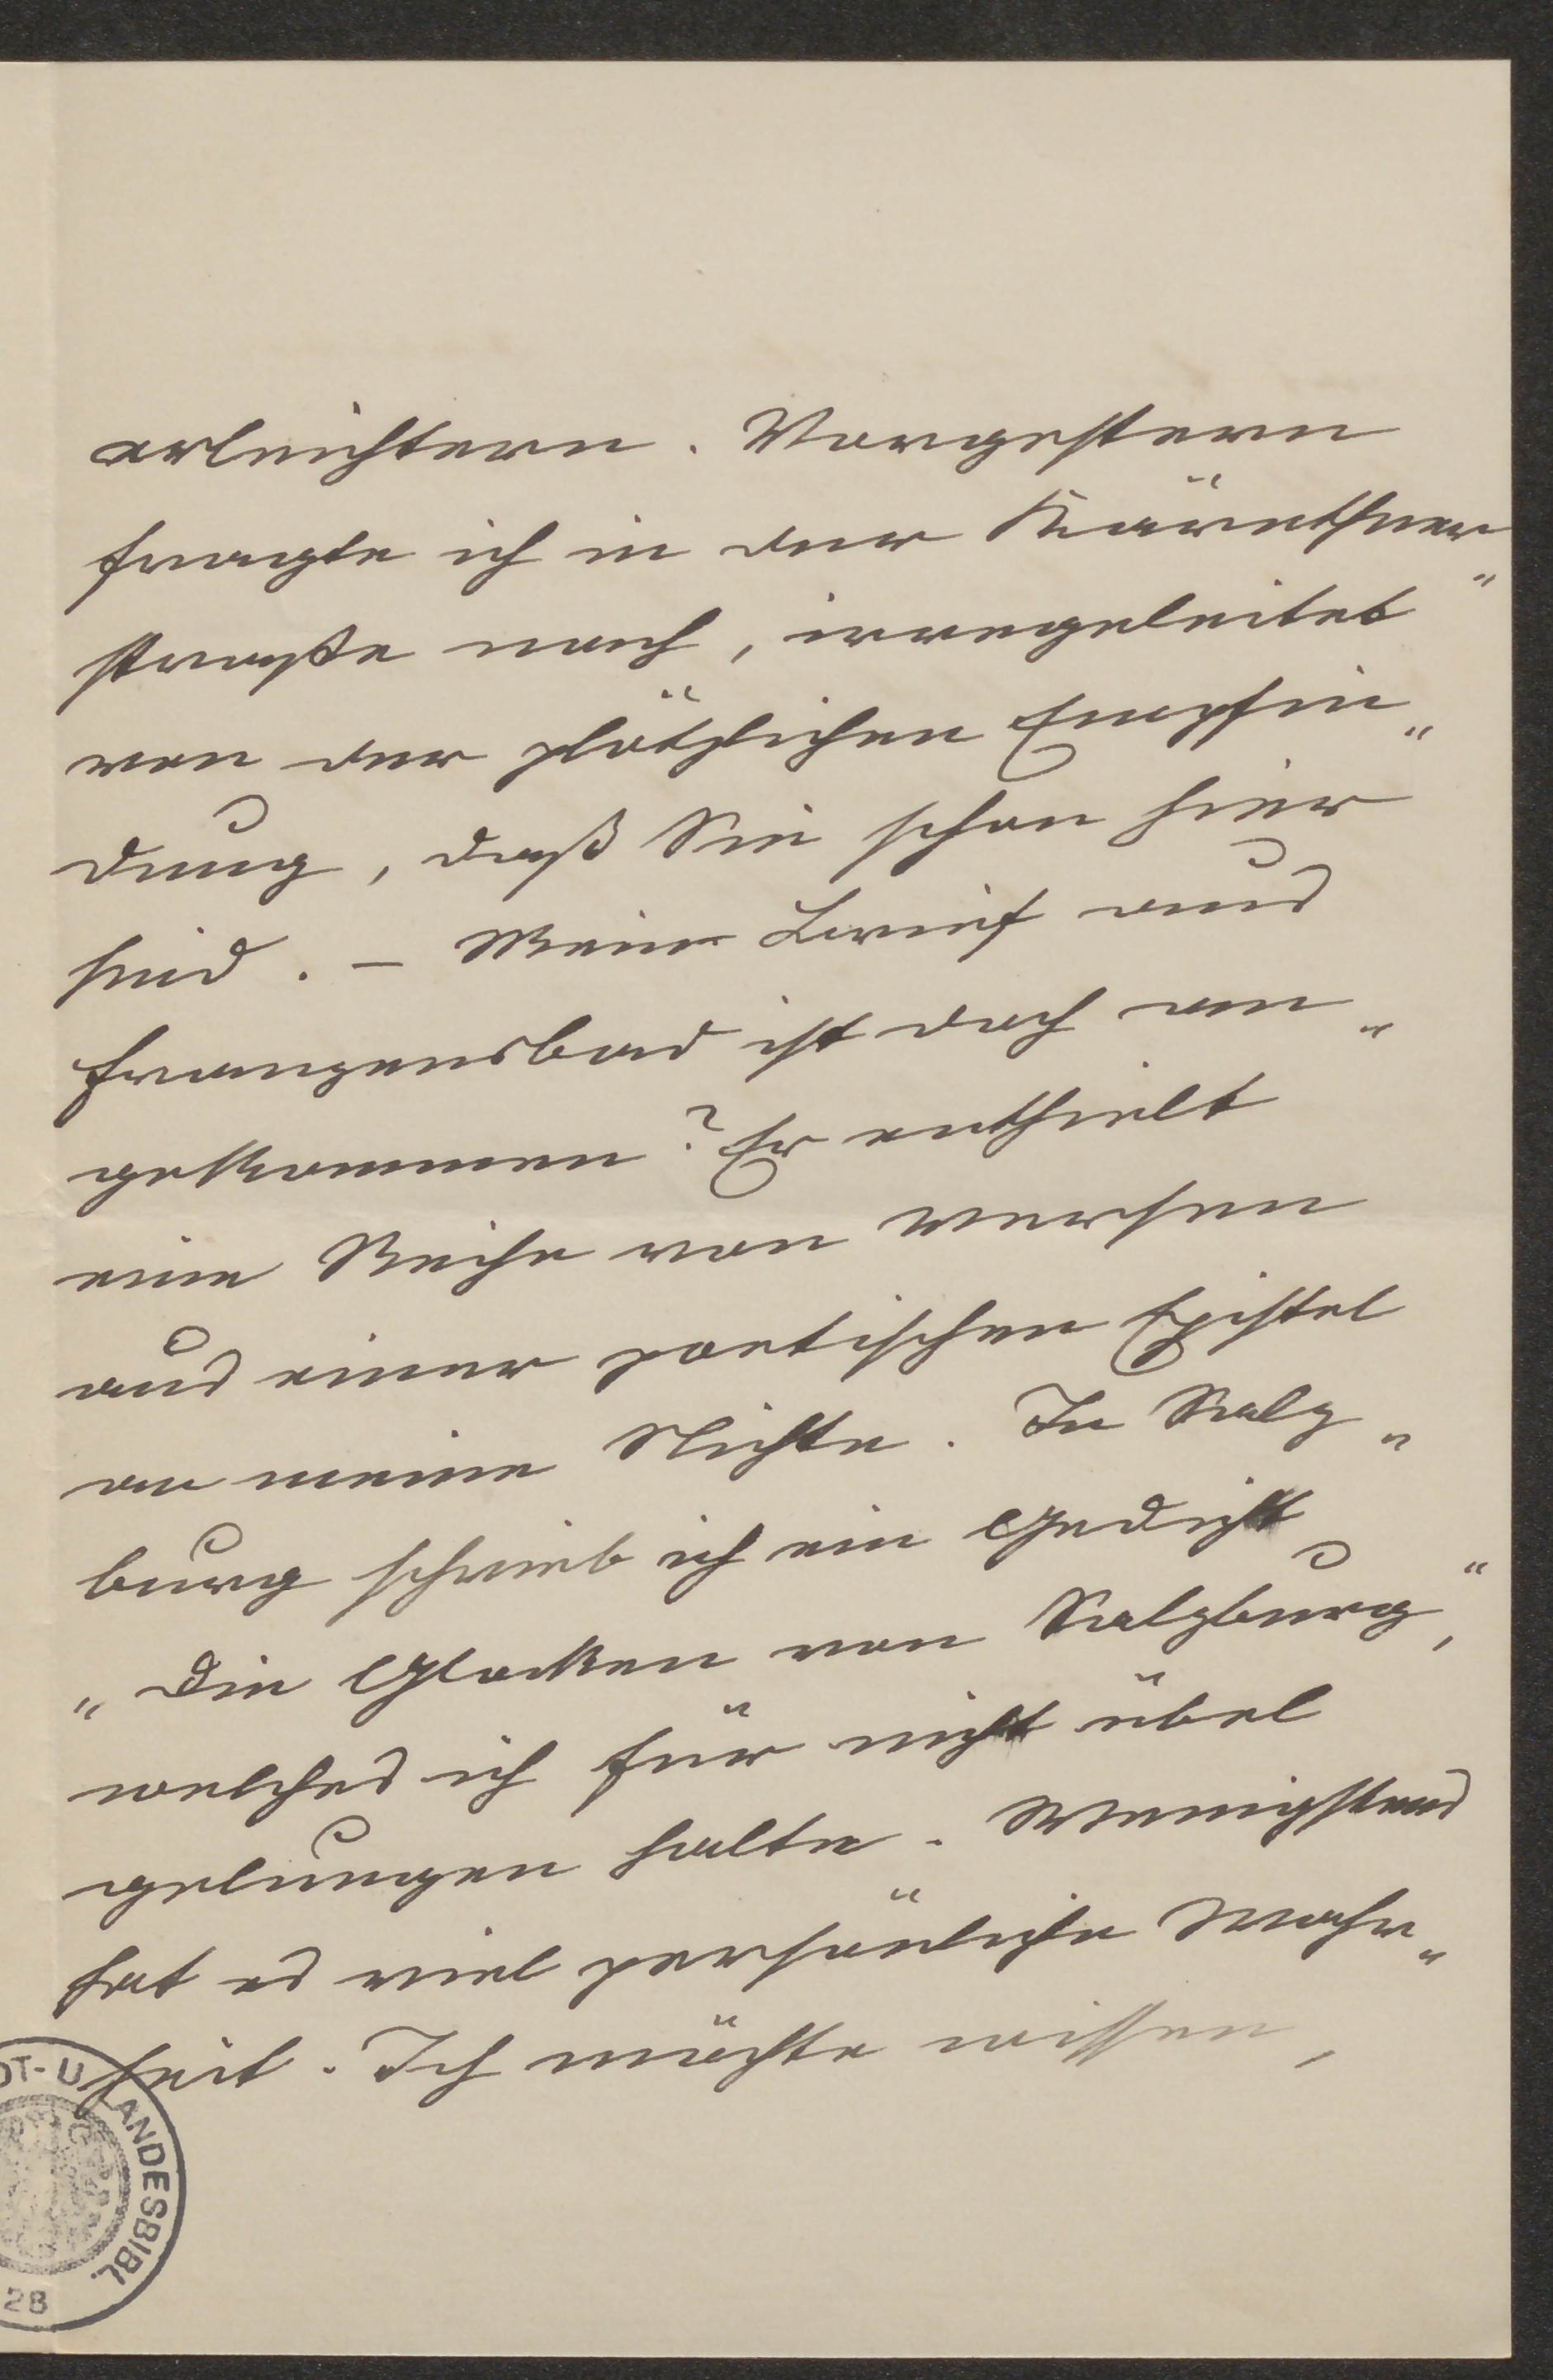 erleichtern. Vorgestern
fragte ich in der Kärnthner„
straße nach, irregeleitet
von der plötzlichen Empfin„
dung, daß Sie schon hier
sind. – Mein Brief aus
Franzensbad ist doch an„
gekommen? Er enthielt
eine Reihe von Versen
aus einer poetischen Epistel
an meine Nichte. In Salz„
burg schrieb ich ein Gedicht
„Die Glocken von Salzburg“,
welches ich für nicht übel
gelungen halte. Wenigstens
hat es viel persönliche Wahr„
heit. Ich möchte wissen,
DT-U LANDESBIBL.
28